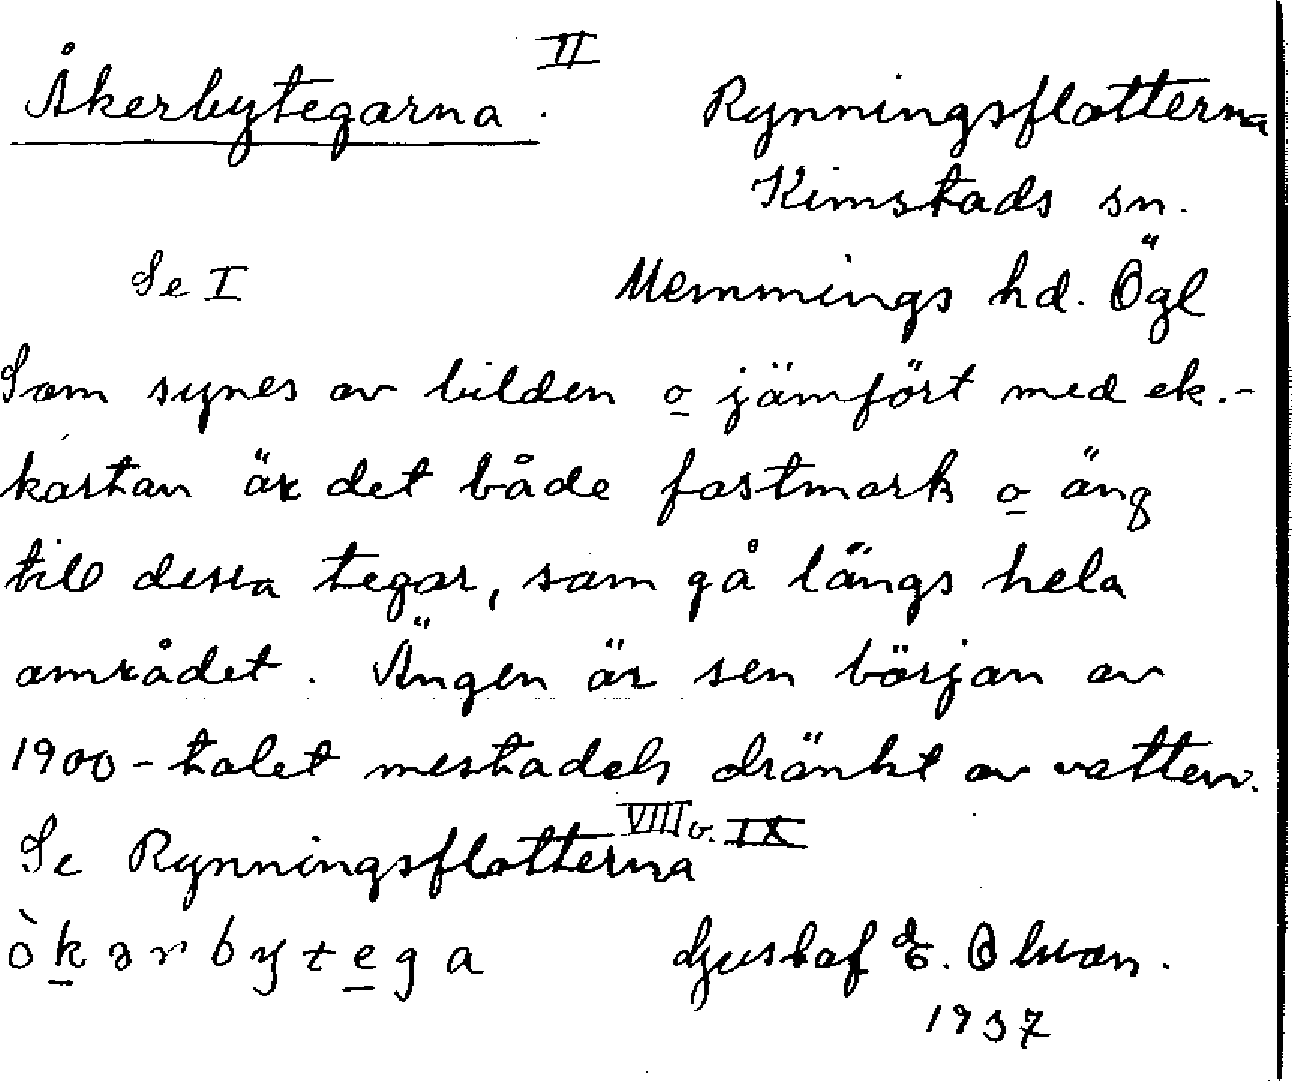 Åkerbytegarna. II Rynningsflatterna
Kimstads sn.
Se I Memmings hd. Ögl
Som synes av bilden o jämfört med ek.-
kartan är det både fastmark o äng
till dessa tegar, som gå längs hela
området. Ängen är sen början av
1900-talet mestadels dränkt av vatten.
Se Rynningsflatterna VIII o. IX
òkərbytega Gustaf E. Olsson.
1937